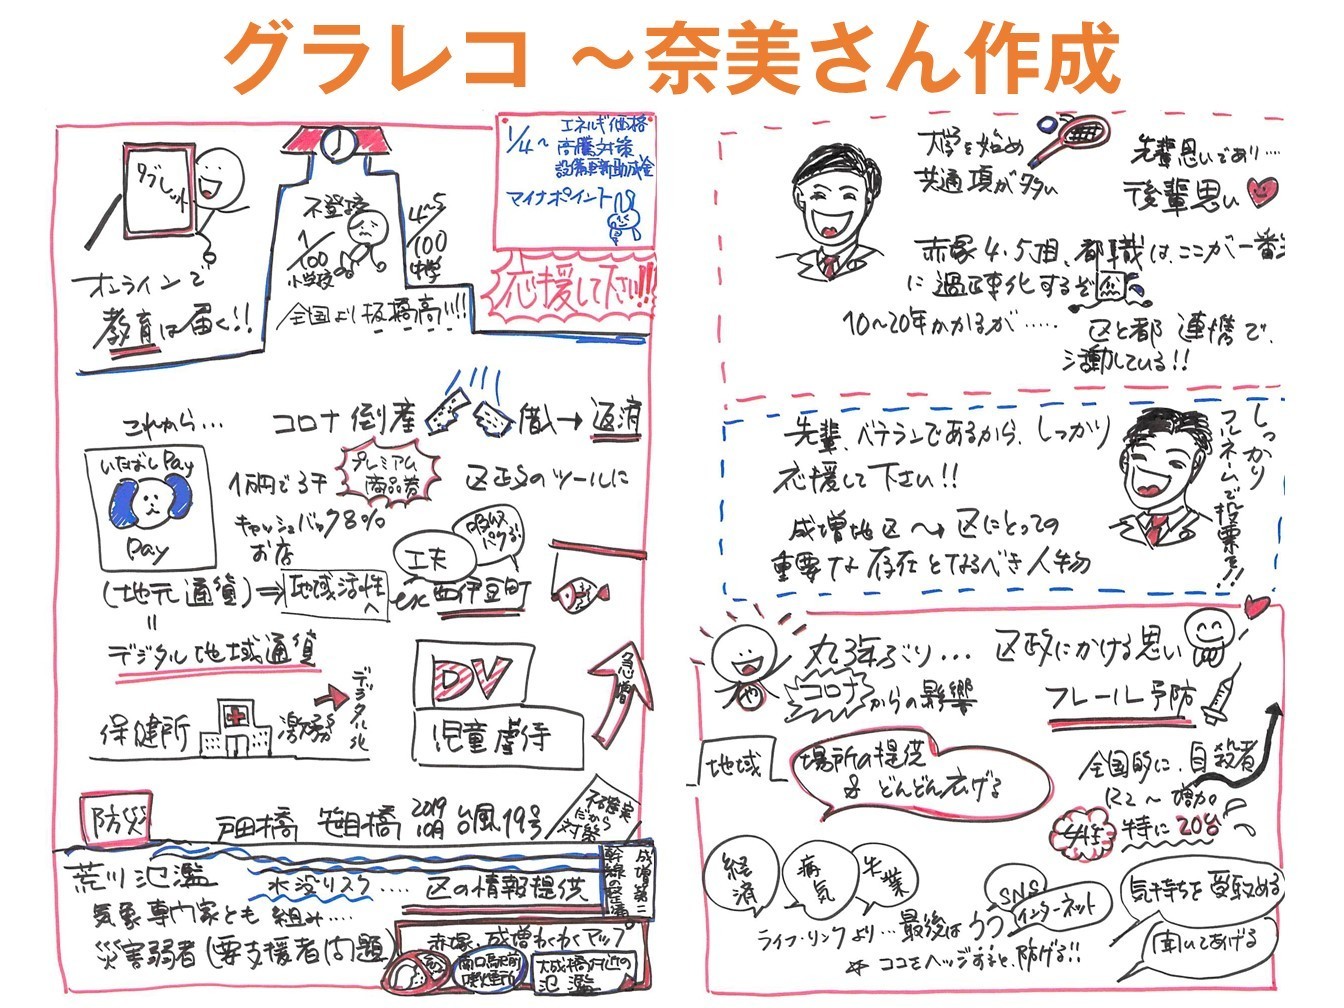 グラレコ ～奈美さん作成
タブレット
オンラインで
教育は届く!!
不登校
1/100
小学校
4~5/100
中学
全国より板橋高!!!
1/4~ エネルギー価格
高騰対策
設備更新助成金
マイナポイント
応援して下さい!!!
これから…
コロナ倒産
借→返済
いたばしPay
Pay
1万円で3千
プレミアム
商品券
区政のツールに
キャッシュバック8%
お店
工夫
(地元通貨)⇒地域活性へ
ex 西伊豆町
=
デジタル地域通貨
保健所
激務
デジタル化
DV
児童虐待
急増
防災
戸田橋 笹目橋 2019 10月 台風19号
荒川氾濫
水没リスク…. 区の情報提供
気象専門家とも組み….
災害弱者(要支援者問題)
赤塚、成増わくわくアップ
大成橋付近の
氾濫
大学を始め
共通項が多い
先輩思いであり…
後輩思い
赤塚4.5丁目、都職はここが一番
に適正化するぞ
10~20年かかるが…..
区と都 連携で
活動している!!
先輩、ベテランであるから、しっかり
応援して下さい!!
成増地区 → 区にとっての
重要な存在となるべき人物
しっかり
フルネームで投票を!!
丸3年ぶり…
コロナからの影響
区政にかける思い
フレール予防
地域
場所の提供
& どんどん広げる
全国的に、自殺者
R2~ 増加
女性 特に20台
経済
病気
失業
SNS
インターネット
ライフ・リンクより…最後はうつ
ココをヘッジすると、防げる!!
気持ちを受け止める
聞いてあげる